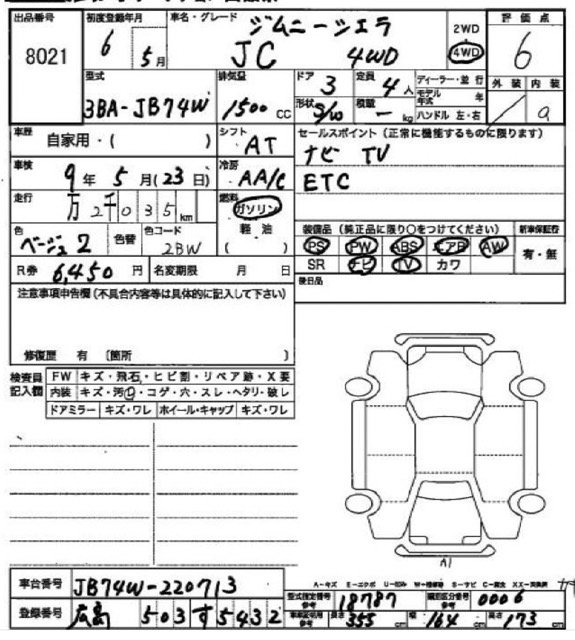 出品番号 初度登録年月 車名・グレード 評価点
8021 6 5月 ジムニーシエラ JC 4WD 2WD 4WD 6
型式 排気量 ドア 3 定員 4人 ディーラー・並行 外装 内装
3BA-JB74W 1500 CC 形状 S/W 積載 - kg モデル年式 年 ハンドル 左・右 a
車歴 自家用・( ) シフト AT セールスポイント (正常に機能するものに限ります)
ナビ TV
車検 9年 5月 (23日) 冷房 AA/C ETC
走行 万 2千035km 燃料 ガソリン 軽油 ( )
色 ベージュ2 色替 色コード 2BW
装備品 (純正品に限り○をつけてください) 新車保証書
PS PW ABS エアB AW 有・無
SR ナビ TV カワ
R券 6,450円 名変期限 月 日 後日品
注意事項申告欄 (不具合内容等は具体的に記入して下さい)
修復歴 有 (箇所 )
検査員記入欄 FW キズ・飛石・ヒビ割・リペア跡・X要
内装 キズ・汚・コゲ・穴・スレ・ヘタリ・破レ
ドアミラー キズ・ワレ ホイール・キャップ キズ・ワレ
A1
車台番号 JB74W-220713
A-キズ E-エクボ
型式指定番号 18787 類別区分番号 0006
登録番号 広島 503 す 5432
長さ 355 幅 164 高さ 173